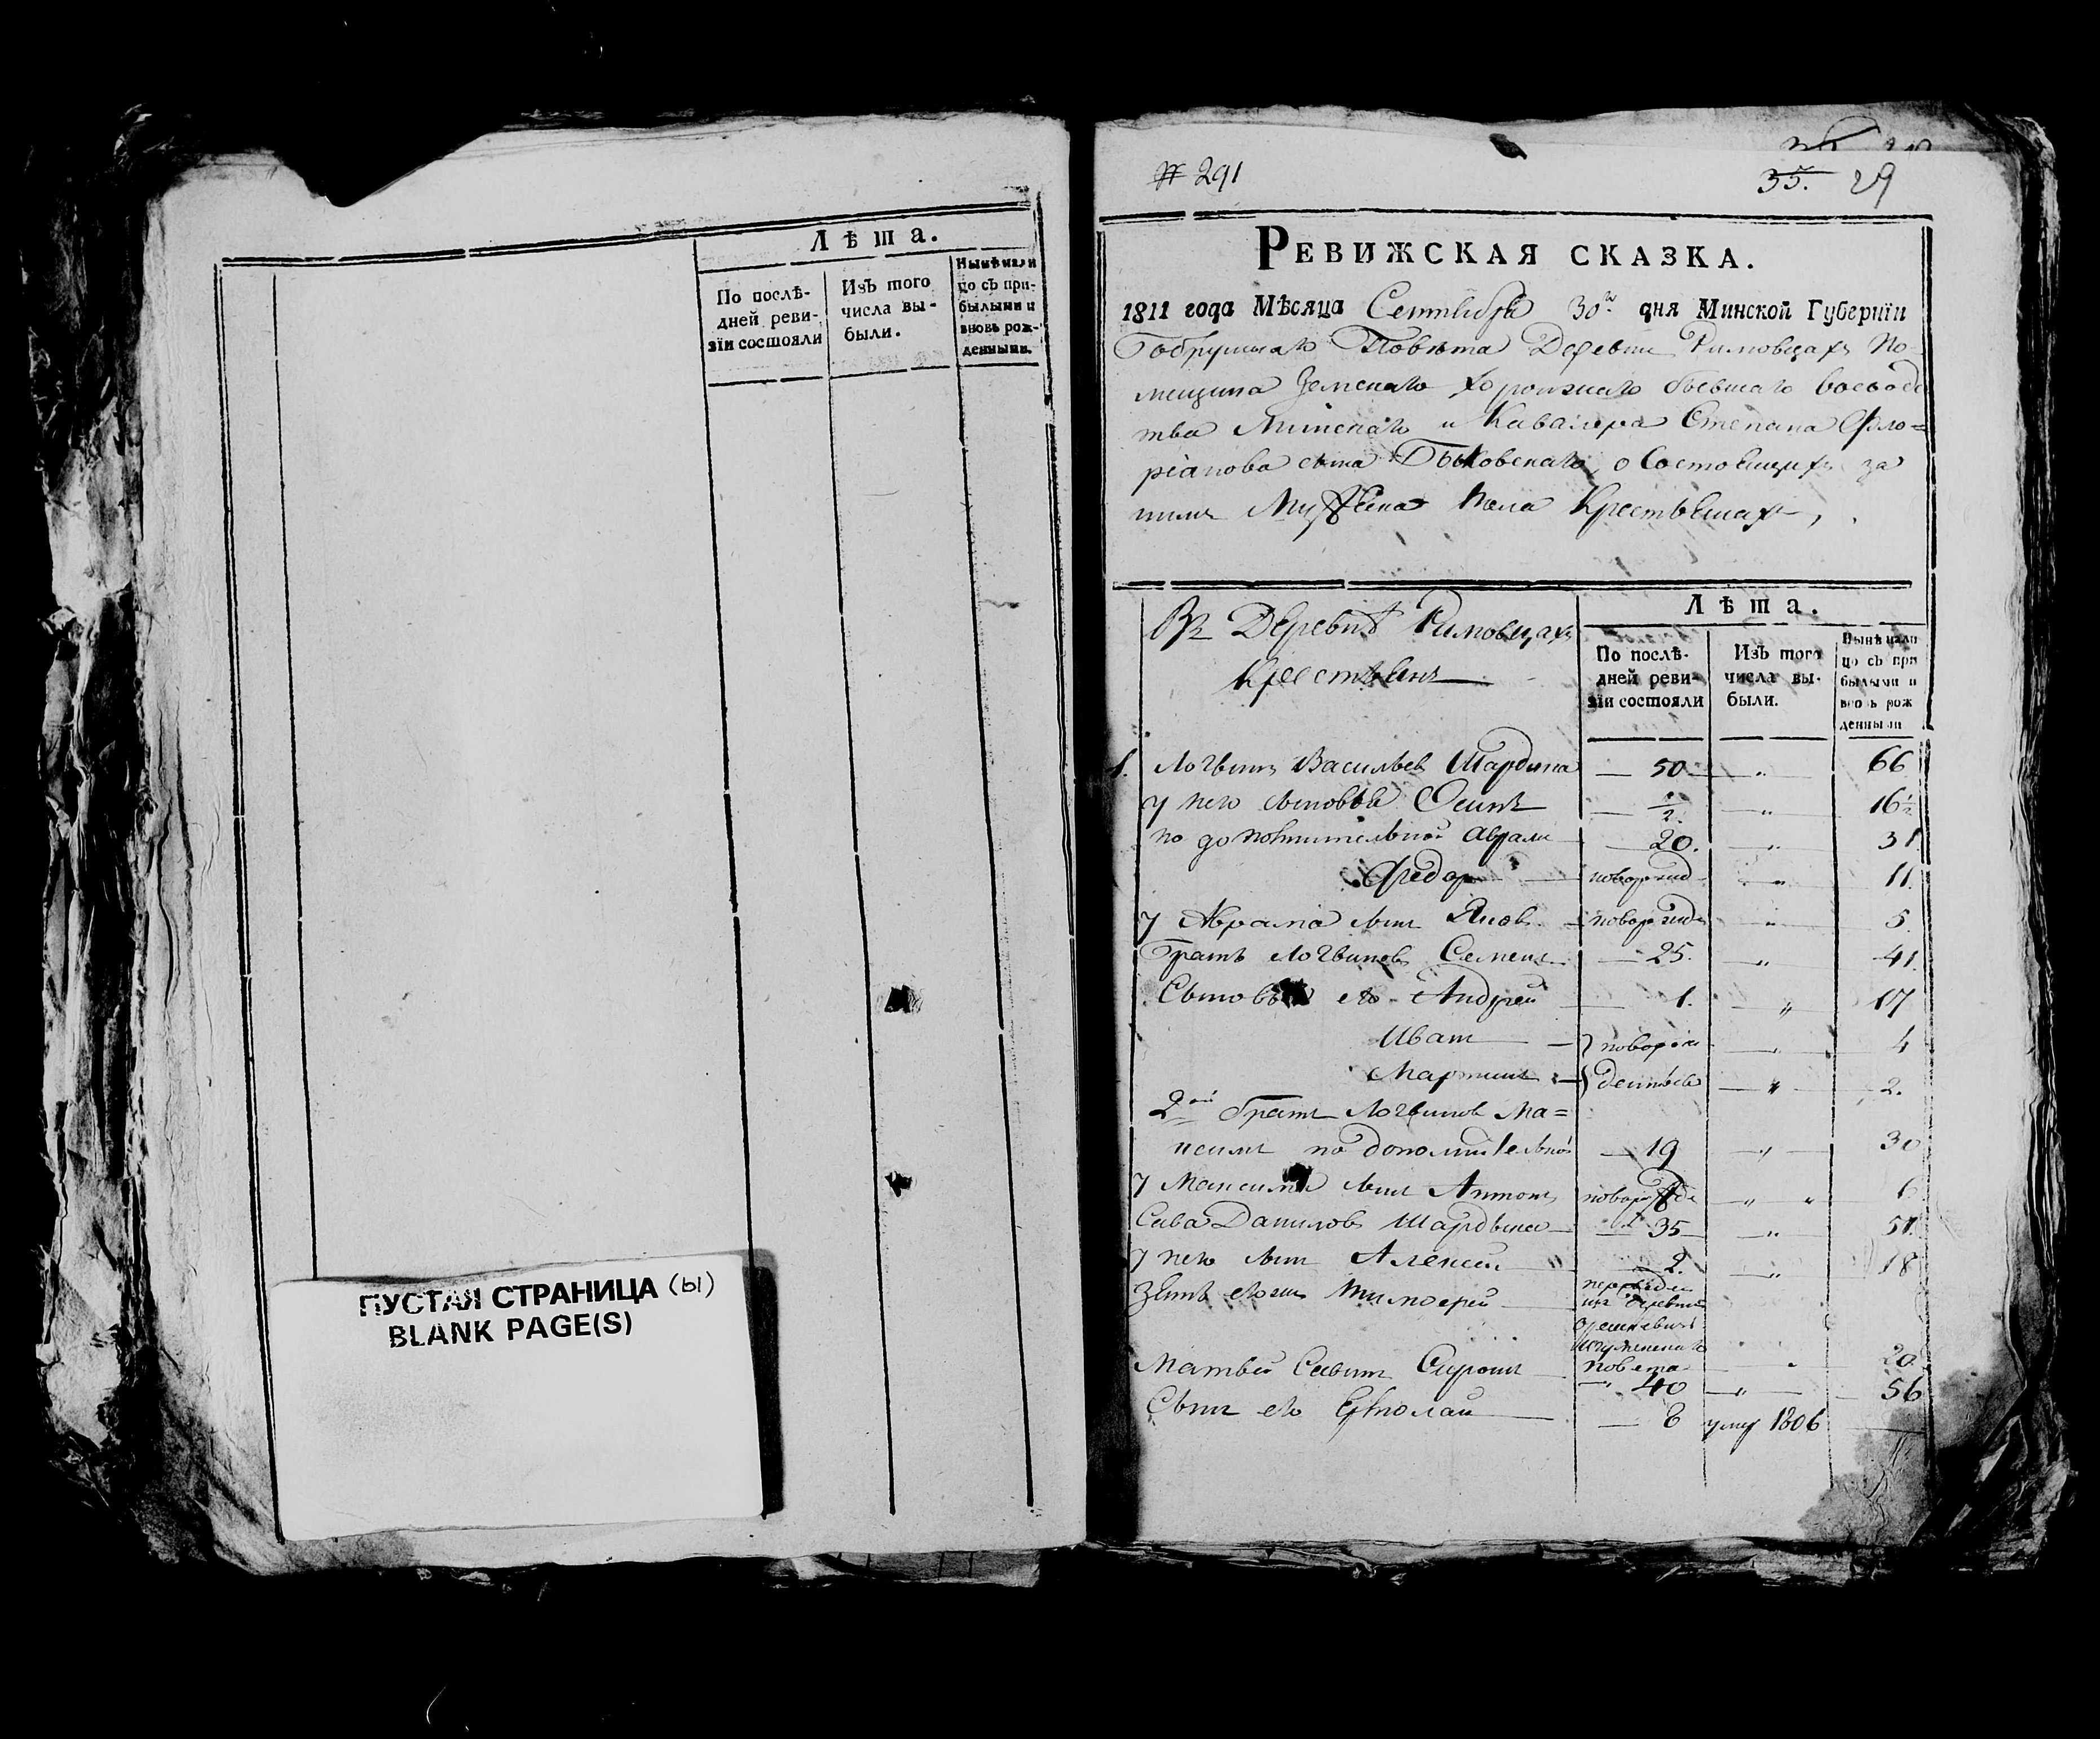 Лѣта.
По послѣ-
дней реви-
зїи состояли
Изъ того
числа вы-
были.
Нынѣ нали
цо съ при-
былыми и
вновь рож-
денными.
ПУСТАЯ СТРАНИЦА (ы)
BLANK PAGE(S)
# 291
35. 29
РЕВИЖСКАЯ СКАЗКА.
1811 года Мѣсяца Сентября 30го дня Минской Губернїи
Бобруйскаго Повѣта Деревни Римовцахъ По
мещика Земскаго Хоронжаго бывшаго воевод
тва Минскаго и Кавалера Степана Фло=
ріанова сына Быковскаго, о Состоящихъ за
нимъ Мужеска Пола Крестьянахъ,
Въ Деревнѣ Римовцахъ
Крестьянъ
Лѣта.
По послѣ-
дней реви-
зїи состояли
Изъ того
числа вы-
были.
Нынѣ нали
цо съ при
былыми и
вновь рож
денными
1. Логвинъ Васильев Шардыка — 50 — „ 66
у него сыновья Осипъ — 1/2. — „ 16 1/2
по дополнительной Аврам — 20. — „ 31
Федор — новорожд — „ 11.
у Аврама сын Яков — новорожде „ 5.
Братъ Логвинов Семенъ — 25. — „ 41.
Сыновья его Андрей — 1. — „ 17
Иван — новорож — „ 4
Мартин — денныя — „ 2.
2ой братъ Логвинов Ма=
ксимъ по дополнительной — 19 — „ 30
у Максима сын Антонъ новорожде — „ 6
Сава Данилов Шардыка — 35 — „ 51.
у него сын Алексей 2. — „ 18
Зять его Тимофей переведен
из деревни
Орешкевичъ
Игуменскаго
Повета — „ 20
Матвей Савин Сирош — 40 — „ 56
Сын его Ермолай — 8 умер 1806 —